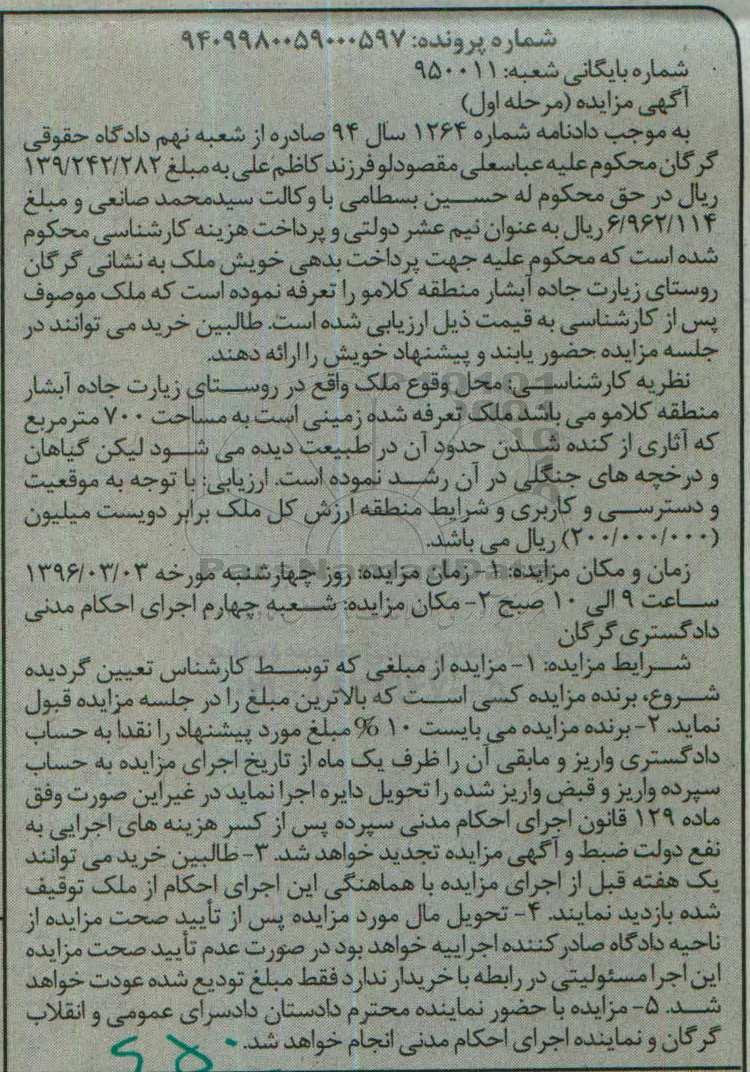 شماره پرونده: ۹۴۰۹۹۸۰۰۵۹۰۰۰۵۹۷
شماره بایگانی شعبه: ۹۵۰۰۱۱
آگهی مزایده (مرحله اول)
به موجب دادنامه شماره ۱۲۶۴ سال ۹۴ صادره از شعبه نهم دادگاه حقوقی
گرگان محکوم علیه عباسعلی مقصودلو فرزند کاظم علی به مبلغ ۱۳۹/۲۴۲/۲۸۲
ریال در حق محکوم له حسین بسطامی با وکالت سیدمحمد صانعی و مبلغ
۶/۹۶۲/۱۱۴ ریال به عنوان نیم عشر دولتی و پرداخت هزینه کارشناسی محکوم
شده است که محکوم علیه جهت پرداخت بدهی خویش ملک به نشانی گرگان
روستای زیارت جاده آبشار منطقه کلامو را تعرفه نموده است که ملک موصوف
پس از کارشناسی به قیمت ذیل ارزیابی شده است. طالبین خرید می توانند در
جلسه مزایده حضور یابند و پیشنهاد خویش را ارائه دهند.
نظریه کارشناسی: محل وقوع ملک واقع در روستای زیارت جاده آبشار
منطقه کلامو می باشد ملک تعرفه شده زمینی است به مساحت ۷۰۰ مترمربع
که آثاری از کنده شدن حدود آن در طبیعت دیده می شود لیکن گیاهان
و درخچه های جنگلی در آن رشد نموده است. ارزیابی: با توجه به موقعیت
و دسترسی و کاربری و شرایط منطقه ارزش کل ملک برابر دویست میلیون
(۲۰۰/۰۰۰/۰۰۰) ریال می باشد.
زمان و مکان مزایده: ۱- زمان مزایده: روز چهارشنبه مورخه ۱۳۹۶/۰۳/۰۳
ساعت ۹ الی ۱۰ صبح ۲- مکان مزایده: شعبه چهارم اجرای احکام مدنی
دادگستری گرگان
شرایط مزایده: ۱- مزایده از مبلغی که توسط کارشناس تعیین گردیده
شروع، برنده مزایده کسی است که بالاترین مبلغ را در جلسه مزایده قبول
نماید. ۲- برنده مزایده می بایست ۱۰ % مبلغ مورد پیشنهاد را نقداً به حساب
دادگستری واریز و مابقی آن را ظرف یک ماه از تاریخ اجرای مزایده به حساب
سپرده واریز و قبض واریز شده را تحویل دایره اجرا نماید در غیر این صورت وفق
ماده ۱۲۹ قانون اجرای احکام مدنی سپرده پس از کسر هزینه های اجرایی به
نفع دولت ضبط و آگهی مزایده تجدید خواهد شد. ۳- طالبین خرید می توانند
یک هفته قبل از اجرای مزایده با هماهنگی این اجرای احکام از ملک توقیف
شده بازدید نمایند. ۴- تحویل مال مورد مزایده پس از تأیید صحت مزایده از
ناحیه دادگاه صادرکننده اجراییه خواهد بود در صورت عدم تأیید صحت مزایده
این اجرا مسئولیتی در رابطه با خریدار ندارد فقط مبلغ تودیع شده عودت خواهد
شد. ۵- مزایده با حضور نماینده محترم دادستان دادسرای عمومی و انقلاب
گرگان و نماینده اجرای احکام مدنی انجام خواهد شد.